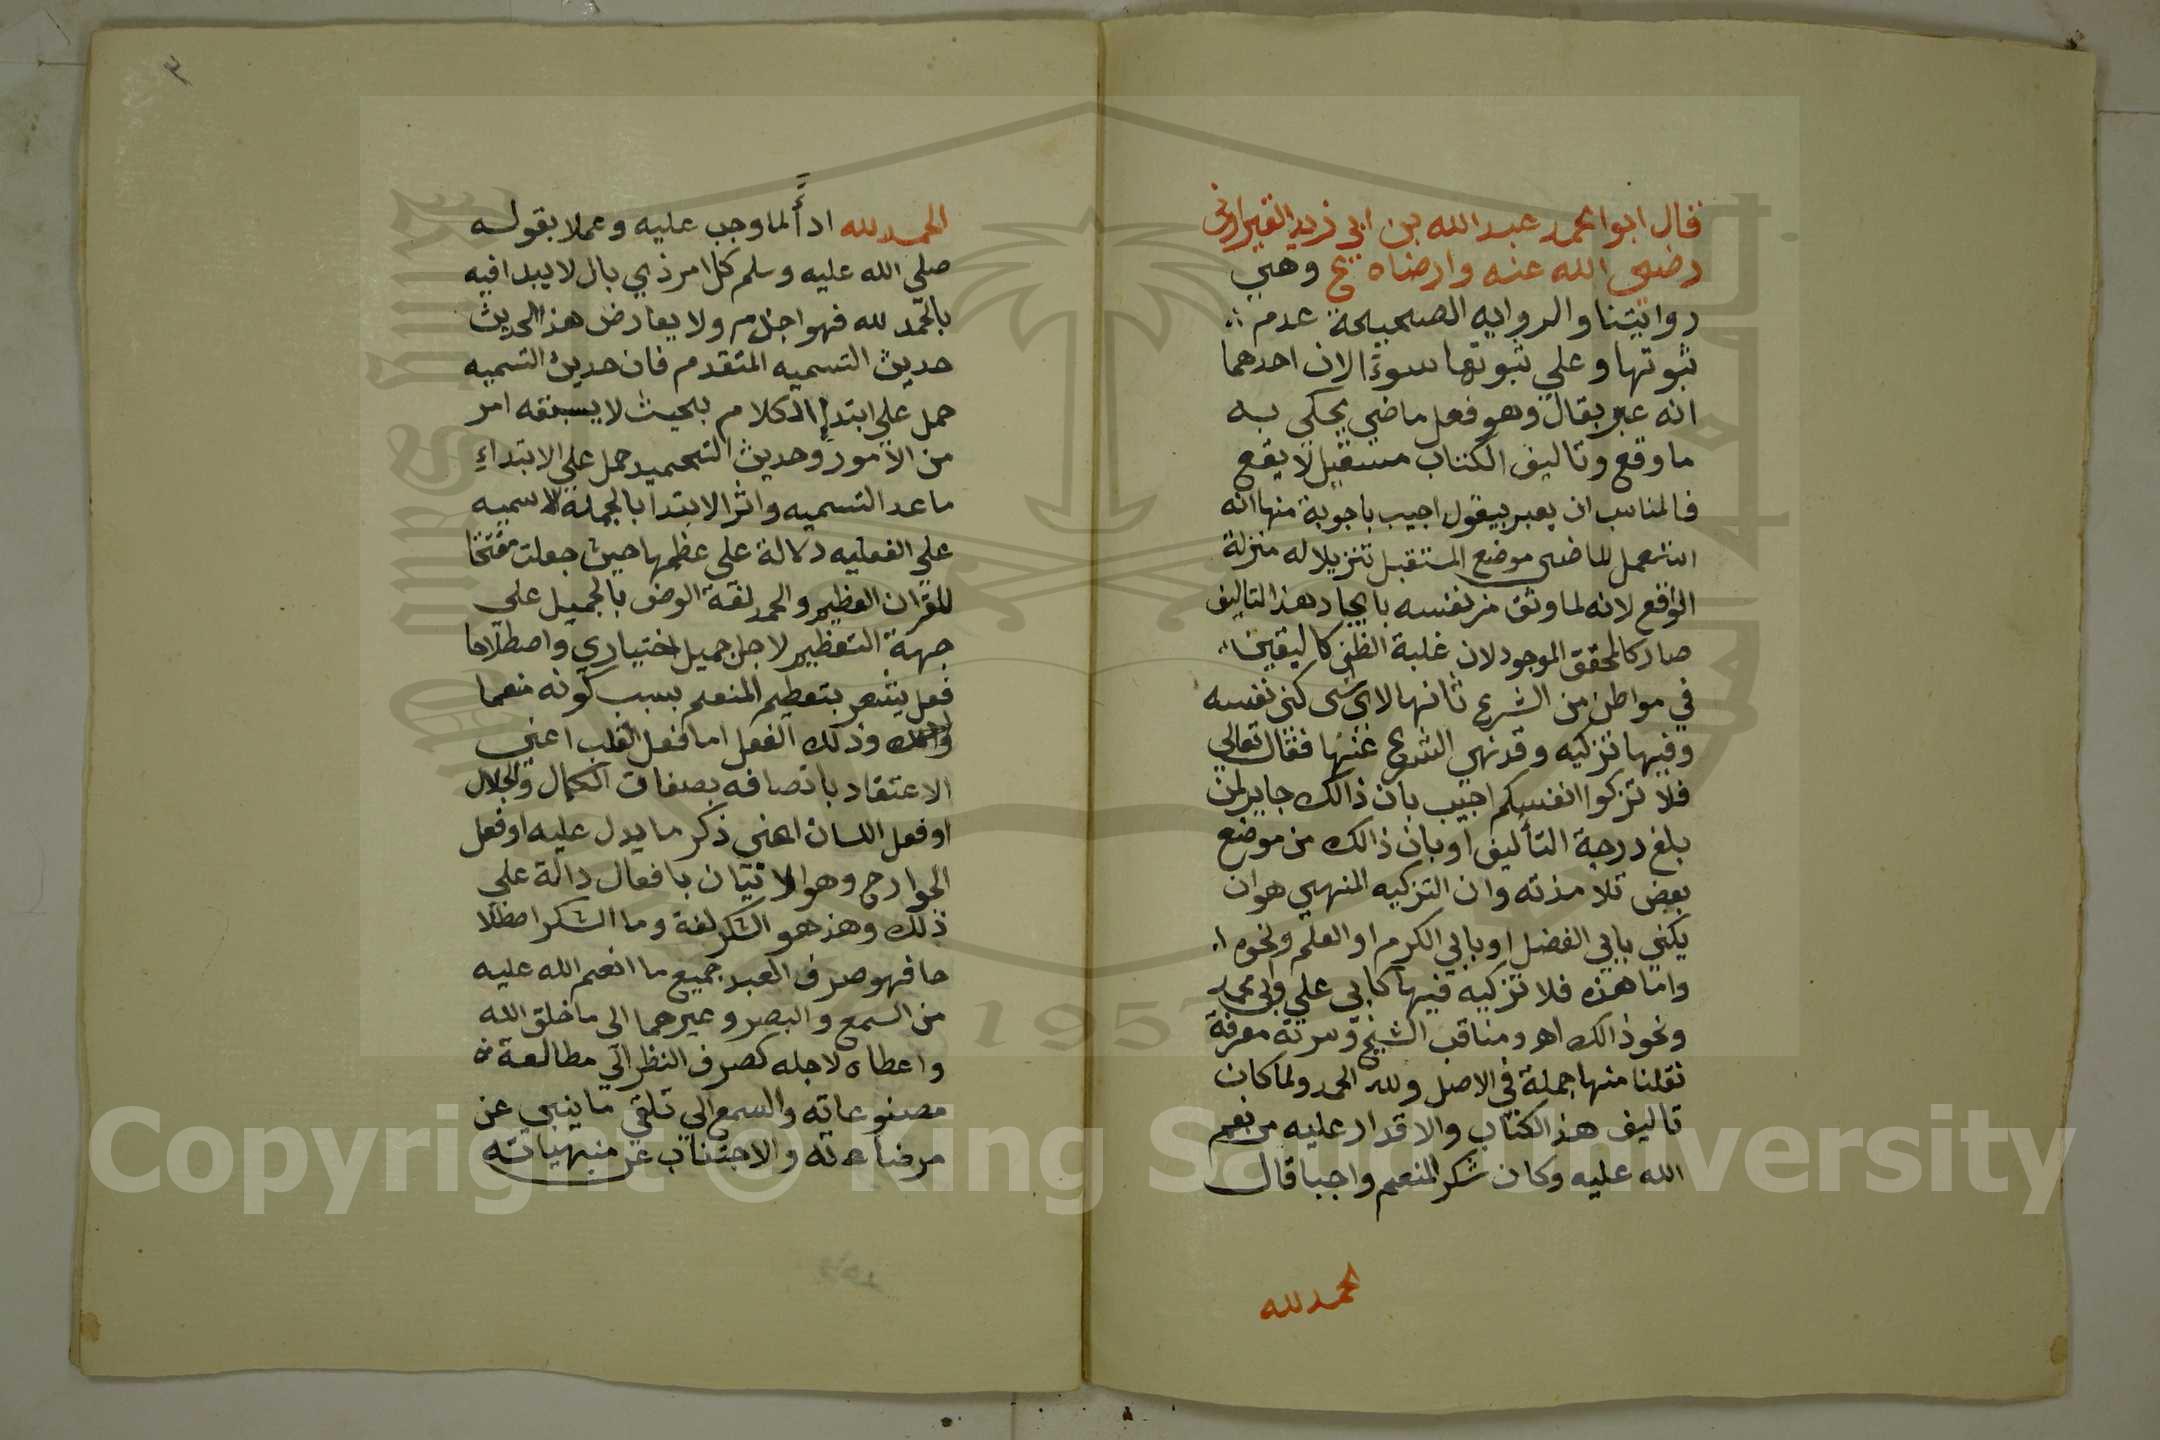 قال ابوا محمد عبد الله بن ابي زيد القيراوني
رضى الله عنه وارضاه ع وهي
روايتنا والروايه الصحيحة عدم
ثبوتها وعلي ثبوتها سوءالان احدهما
انه عبر بقال وهو فعل ماضي يحكى به
ما وقع وتاليف الكتاب مستقبل لا يقع
فالمناسب ان يعبر بيقول اجيب باجوبة منها انه
استعمل الماضى موضع المستقبل تنزيلا له منزلة
الواقع لانه لما وثق من نفسه بايجاد هذا التاليف
صار كالمحقق الموجود لان غلبة الظن كاليقين
في مواطن من الشرع ثانها لاي شى كنى نفسه
وفيها تزكيه وقد نهي الشرع عنها فقال تعالي
فلا تزكوا انفسكم اجيب بان ذالك جايز لمن
بلغ درجة التأليف او بان ذالك من موضع
بعض تلامذته وان التزكيه المنهي هو ان
يكني بابي الفضل او بابي الكرم او العلم ونحوه
واما هذه فلا تزكيه فيها كابي علي وابي محمد
ونحو ذالك اه ومناقب الشيخ وسرته معرفة
نقلنا منها جملة في الاصل ولله الحمد ولما كان
تاليف هذ الكتاب والاقدار عليه من نعم
الله عليه وكان شكر المنعم واجبا قال
الحمد لله
٣
الحمد لله ادأ لما وجب عليه وعملا بقوله
صلي الله عليه وسلم كل امر ذي بال لا يبدا فيه
بالحمد لله فهو اجذم ولا يعارض هذ الحديث
حديث التسميه المتقدم فان حديث التسميه
حمل علي ابتدإ الكلام بحيث لا يسبقه امر
من الامور وحديث التحميد حمل علي الابتداء
ما عد التسميه واثر الابتدا بالجملة الاسميه
علي الفعليه دلالة علي عظمها حيث جعلت مفتتحا
للقران العظيم والحمد لغة الوصف بالجميل علي
جهة التعظيم لاجل جميل اختياري واصطلاحا
فعل يشعر بتعظيم المنعم بسبب كونه منعما
وذلك الفعل اما فعل القلب اعني
الاعتقاد باتصافه بصفات الكمال والجلال
او فعل اللسان اعني ذكر ما يدل عليه او فعل
الجوارح وهو الاتيان بافعال دالة علي
ذلك وهذ هو الشكر لغة وما الشكر اصطلا
حا فهو صرف العبد جميع ما انعم الله عليه
من السمع والبصر وغيرهما الي ما خلق الله
واعطاه لاجله كصرف النظر الي مطالعة
مصنوعاته والسمع الي تلقي ما ينبي عن
مرضاته والاجتناب عن منهياته
Copyright © King Saud University
1957